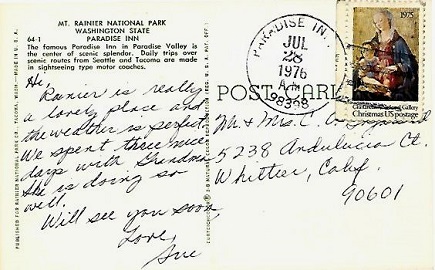 MT. RAINIER NATIONAL PARK
WASHINGTON STATE
64-1 PARADISE INN
The famous Paradise Inn in Paradise Valley is
the center of scenic splendor. Daily trips over
scenic routes from Seattle and Tacoma are made
in sightseeing type motor coaches.
Hi,
Rainier is really
a lovely place and
the weather is perfect.
We spent three nice
days with Grandma
She is doing so
well.
Will see you soon,
Love,
Sue
POST CARD
PARADISE INN
JUL
28
1976
A.M.
98398
1975
Christmas US postage
Mr & Mrs. C.
5238 Andulucia Ct.
Whittier, Calif.
90601